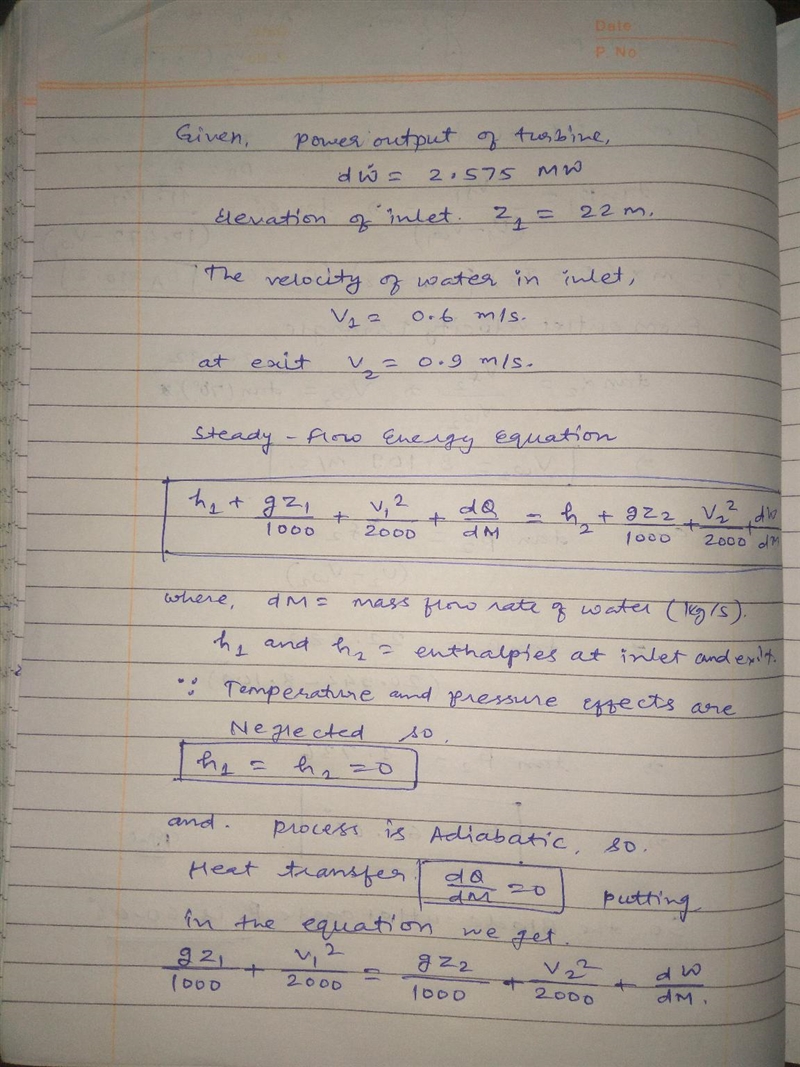 Date
P. No
Given, power output of turbine,
dẆ = 2.575 MW
elevation of inlet. Z₁ = 22 m.
The velocity of water in inlet,
V₁ = 0.6 m/s.
at exit V₂ = 0.9 m/s.
Steady-flow Energy Equation
h₁ + gZ₁/1000 + V₁²/2000 + dQ/dM = h₂ + gZ₂/1000 + V₂²/2000 + dW/dM
where, dM = mass flow rate of water (kg/s).
h₁ and h₂ = enthalpies at inlet and exit.
∵ Temperature and pressure effects are
Neglected so,
h₁ = h₂ = 0
and. process is Adiabatic, so.
Heat transfer dQ/dM = 0 putting
in the equation we get.
gZ₁/1000 + V₁²/2000 = gZ₂/1000 + V₂²/2000 + dW/dM.